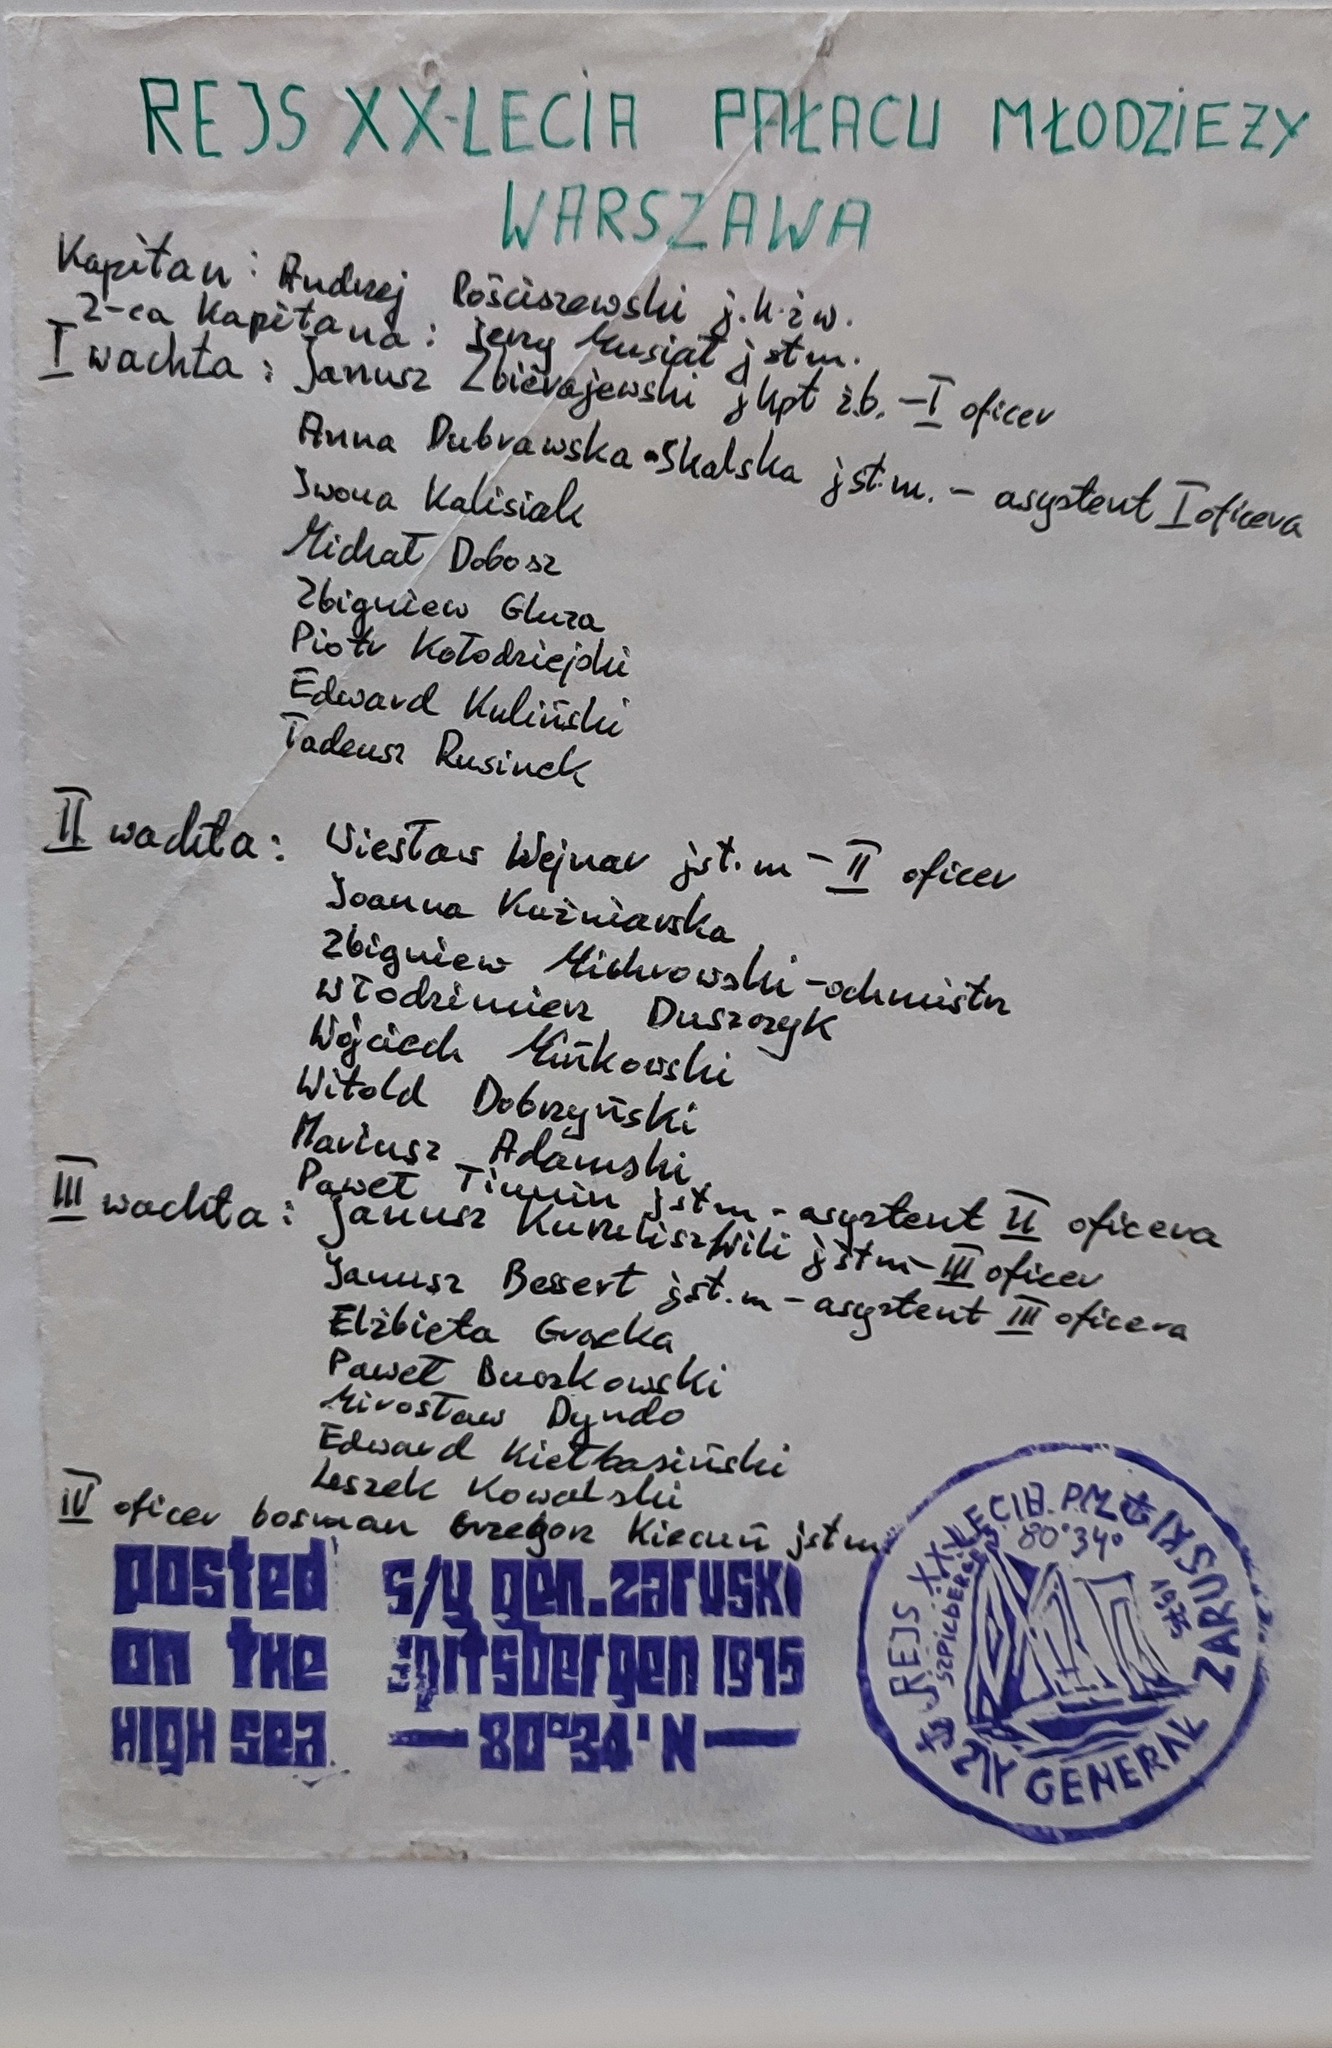 REJS XX-LECIA PAŁACU MŁODZIEZY
WARSZAWA
Kapitan: Andrzej Rościszewski j.k.ż.w.
Z-ca Kapitana: Jerzy Musiał jstm.
I wachta: Janusz Zbierajewski jkpt ż.b. - I oficer
Anna Dubrawska-Skalska jst.m. - asystent I oficera
Iwona Kalisiak
Michał Dobosz
Zbigniew Gluza
Piotr Kołodziejski
Edward Kuliński
Tadeusz Rusinek
II wachta: Wiesław Wejnar jst.m - II oficer
Joanna Kuźniarska
Zbigniew Michrowski - ochmistrz
Włodzimierz Duszczyk
Wojciech Mińkowski
Witold Dobrzyński
Mariusz Adamski
Paweł jstm - asystent II oficera
III wachta: Janusz Kureliszwili jstm - III oficer
Janusz Bessert jst.m - asystent III oficera
Elżbieta Grocka
Paweł Buczkowski
Mirosław Dyndo
Edward Kiełbasiński
Leszek Kowalski
IV oficer bosman Grzegorz jstm.
posted s/y gen.zaruski
on the spitsbergen 1975
HIGH sea — 80°34'N —
REJS XX-LECIA P.M.
S/Y GENERAŁ ZARUSKI
SZPICBERGEN 80°34' 1975